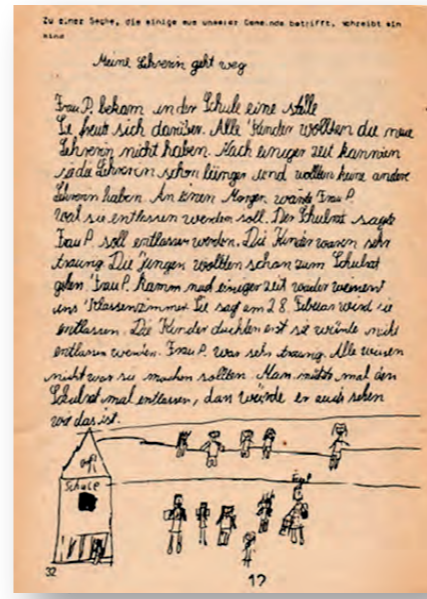 Zu einer Sache, die einige aus unserer Gemeinde betrifft, schreibt ein
Kind
Meine Lehrerin geht weg
Frau P. bekam in der Schule eine stelle
Sie freute sich darüber. Alle Kinder wollten die neue
Lehrerin nicht haben. Nach einiger zeit kannten
sie die Lehrerin schon länger und wollten keine andere
Lehrerin haben. An einen Morgen weinte Frau P.
weil sie entlassen werden soll. Der Schulrat sagte
Frau P. soll entlassen werden. Die Kinder waren sehr
traurig. Die Jungen wollten schon zum Schulrat
gehen. Frau P. kamm nach einiger zeit wieder weinent
ins Klassenzimmer. Sie sagt am 28. Februar wird sie
entlassen. Die Kinder dachten erst sie würde nicht
entlassen werden. Frau P. war sehr traurig. Alle wusten
nicht was sie machen sollten. Man müsste mal den
Schulrat mal entlassen, dan würde er auch sehen
wie das ist.
Schule
32
12